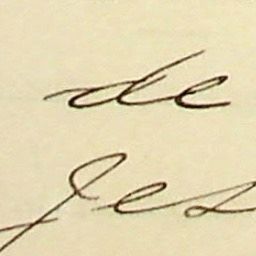 de
Jes